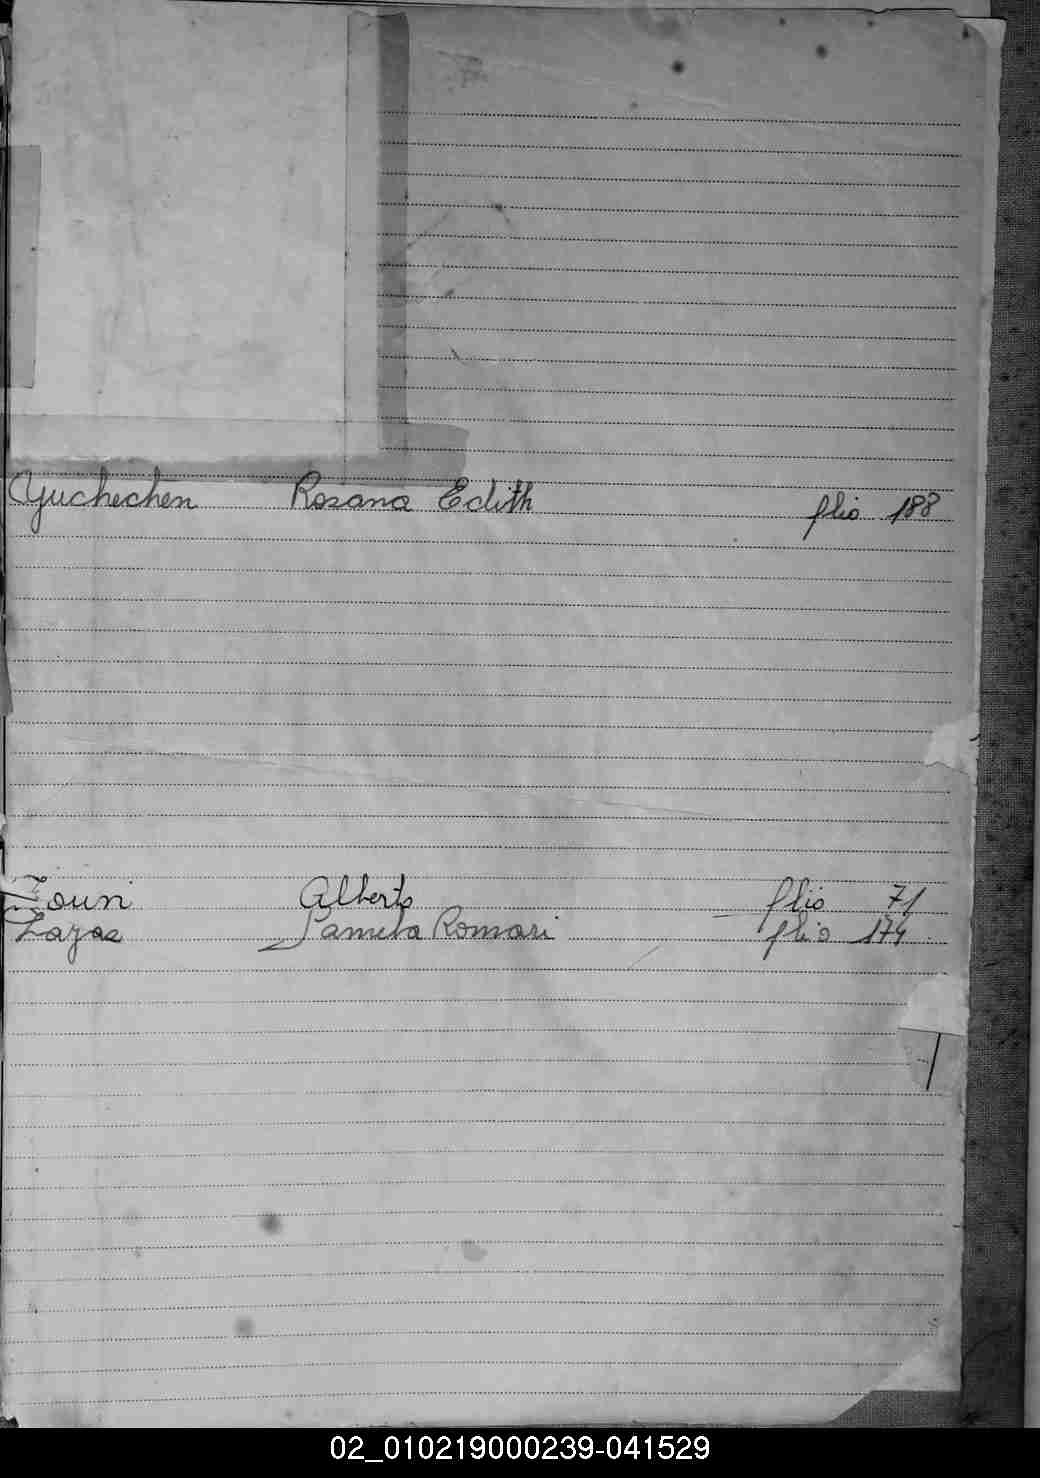 Yuchechen Rosana Edith flio 188
Zouri Alberto flio 71
Zayas Pamela Romari flio 174
02_010219000239-041529